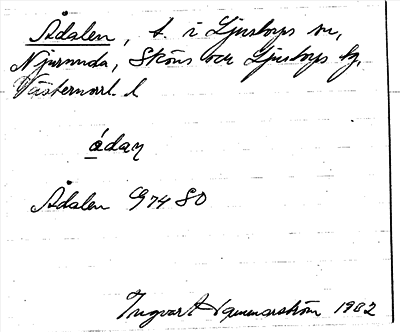 Ådalen, t. i Ljustorps sn,
Njurunda, Sköns och Ljustorps tg,
Västernorrl. l
ådaŋ
Ådalen G7480
Ingvar 1982